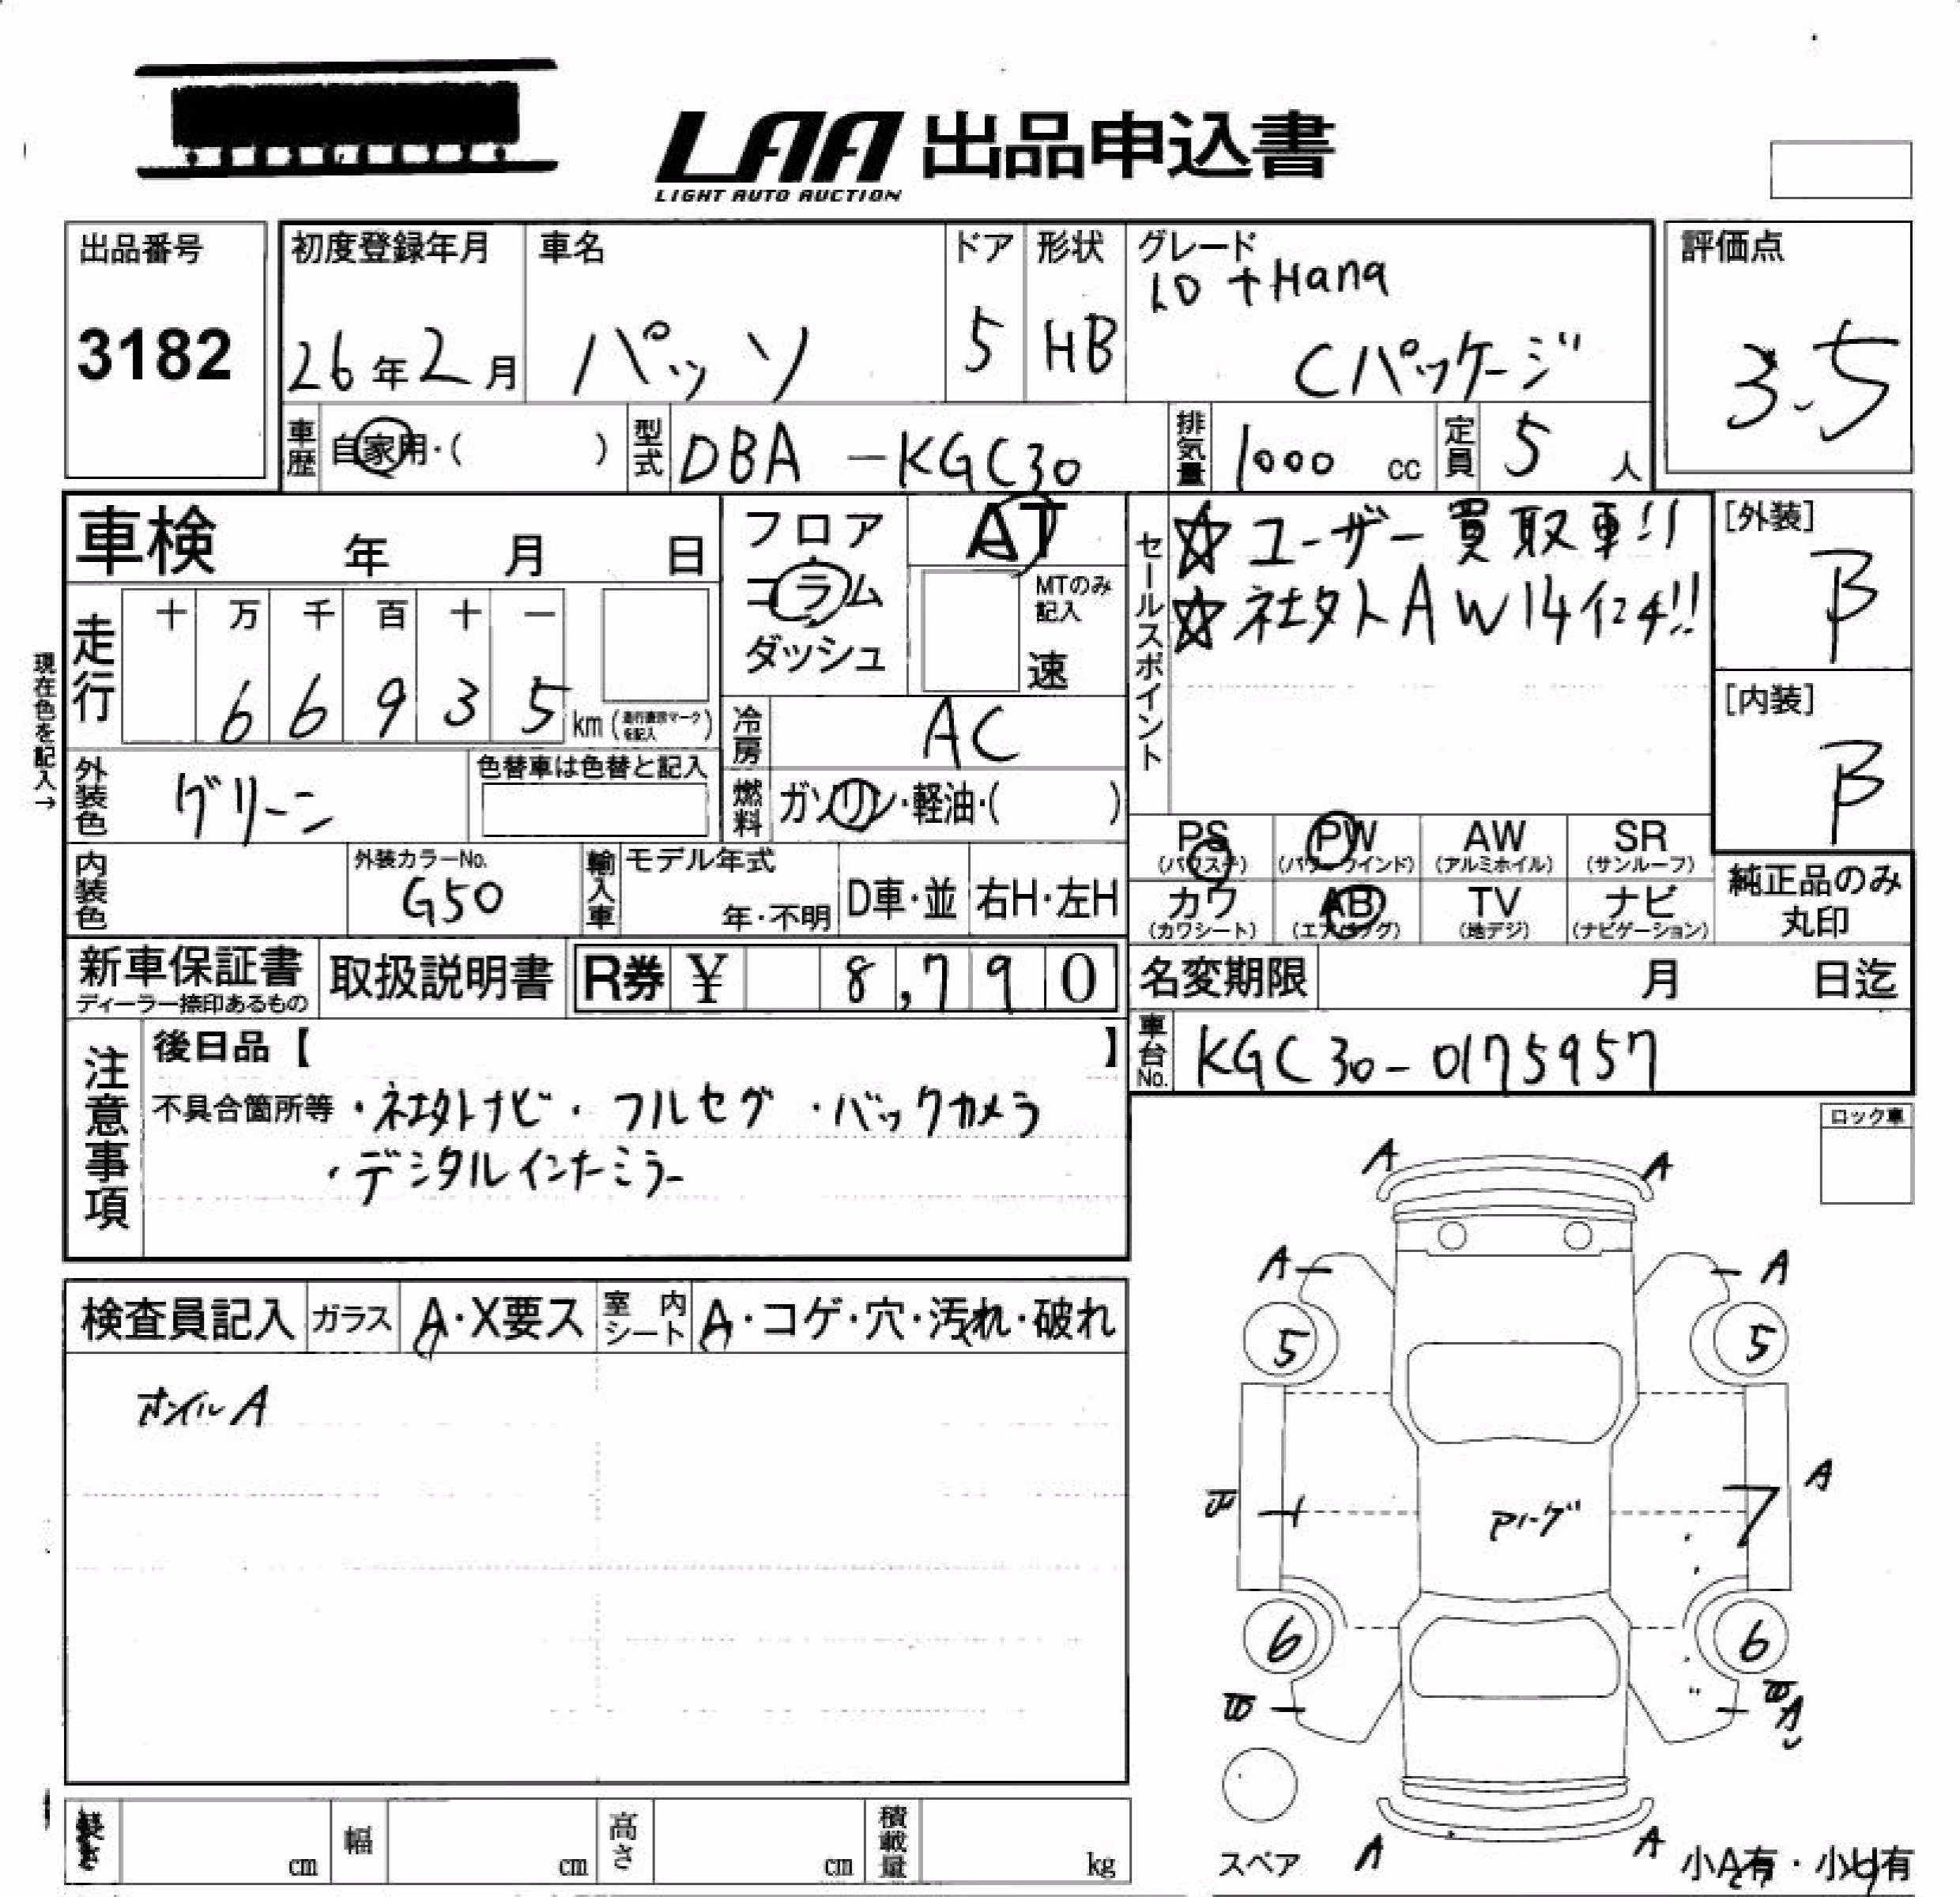 LAA 出品申込書
LIGHT AUTO AUCTION
出品番号
3182
初度登録年月
26年2月
車名
パッソ
ドア
5
形状
HB
グレード
1.0 +Hana
Cパッケージ
評価点
3.5
車歴 自家用・( )
型式 DBA-KGC30
排気量 1000 cc
定員 5 人
車検 年 月 日
走行
十 万 千 百 十 一
6 6 9 3 5 km
現在色を記入→
フロア
コラム
ダッシュ
AT
MTのみ
記入
速
冷房 AC
燃料 ガソリン・軽油・( )
セールスポイント
☆ユーザー買取車!!
☆社外AW14インチ!!
[外装]
B
[内装]
B
外装色 グリーン
色替車は色替と記入
内装色
外装カラーNo.
G50
輸入車
モデル年式
年・不明
D車・並
右H・左H
PS (パワステ)
PW (パワーウインド)
AW (アルミホイル)
SR (サンルーフ)
カワ (カワシート)
AB (エアバッグ)
TV (地デジ)
ナビ (ナビゲーション)
純正品のみ
丸印
新車保証書
ディーラー捺印あるもの
取扱説明書
R券 ¥ 8,790
名変期限 月 日迄
車台No. KGC30-0175957
注意事項
後日品【 】
不具合箇所等 ・社外ナビ・フルセグ・バックカメラ
・デジタルインナーミラー
ロック車
検査員記入
ガラス A・X要ス
室内シート A・コゲ・穴・汚れ・破れ
ホイルA
A A
A A
5 5
A
7
6 6
A A
スペア
小A有・小U有
幅 cm
cm
高さ cm
積載量 kg